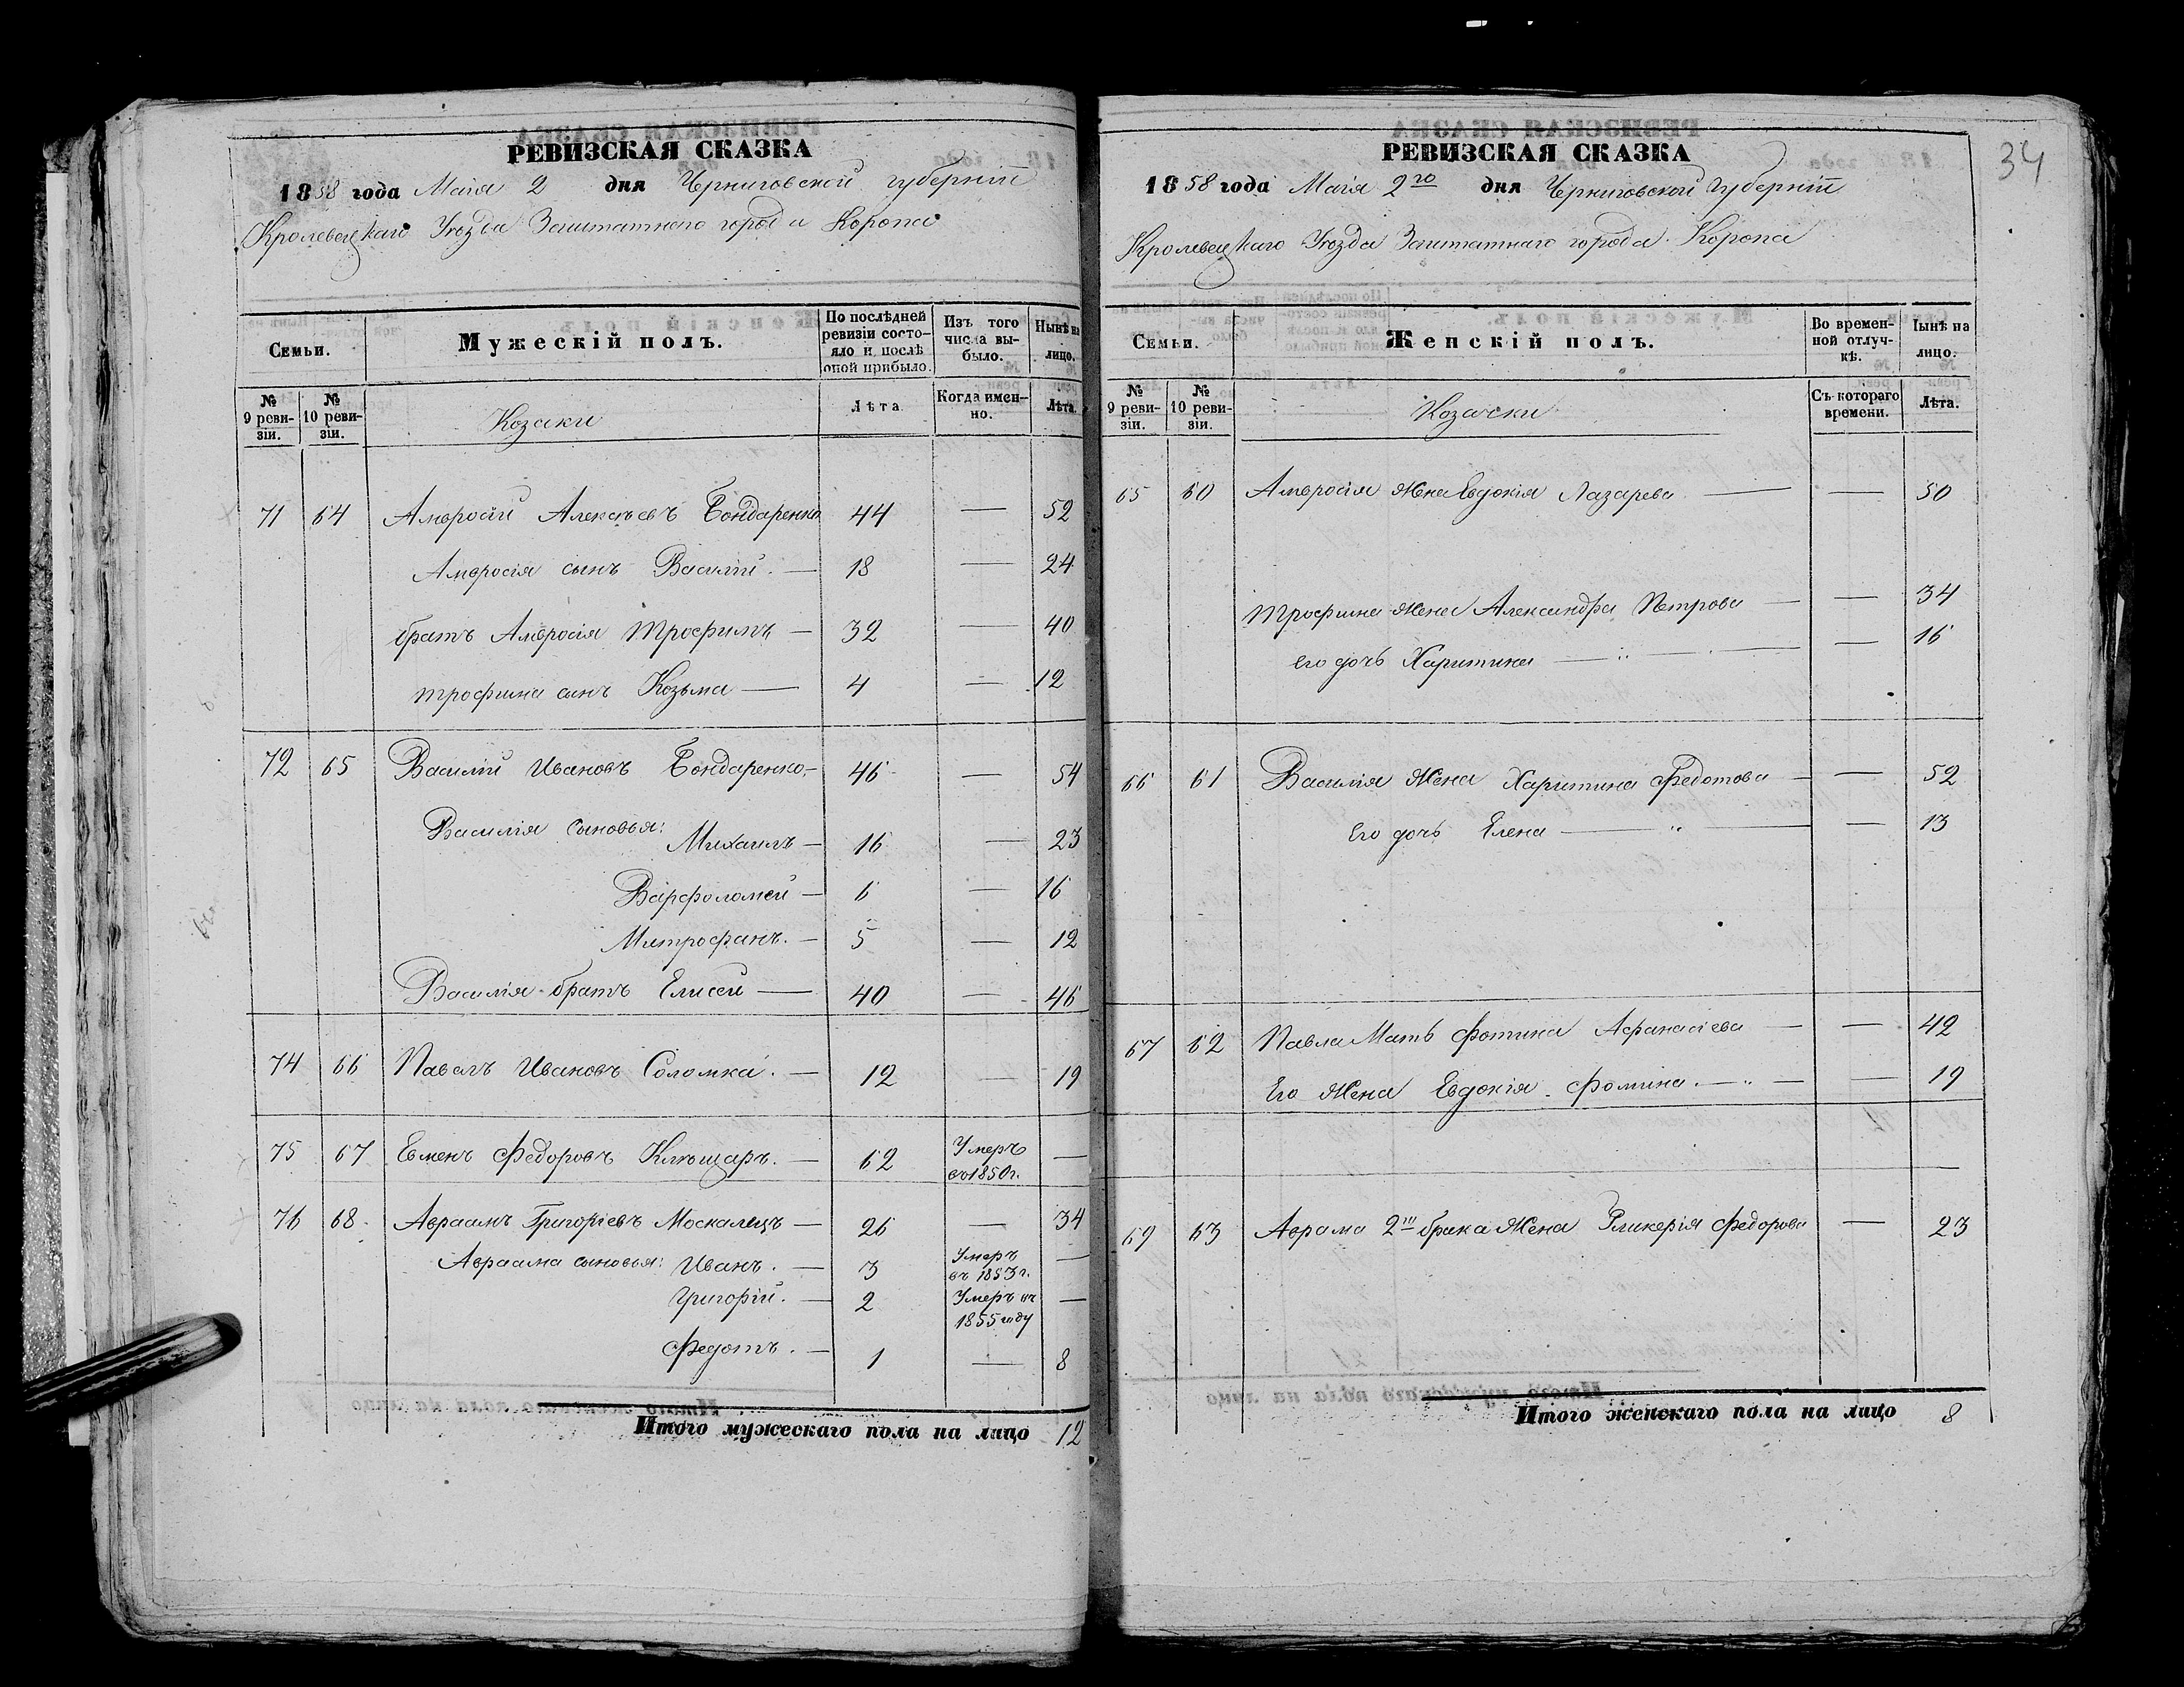 34
РЕВИЗСКАЯ СКАЗКА
1858 года Маія 2 дня Черниговской губерніи
Кролевецкаго Уѣзда Заштатнаго города Коропа
Семьи.
Мужескій полъ.
По послѣдней ревизіи состояло и послѣ оной прибыло.
Изъ того числа выбыло.
Нынѣ на лицо.
№ 9 ревизіи.
№ 10 ревизіи.
Козаки
Лѣта
Когда именно.
Лѣта.
71 64 Амвросій Алексѣевъ Бондаренко 44 — 52
Амвросія сынъ Василій. — 18 — 24
братъ Амвросія Трофимъ — 32 — 40
Трофима сынъ Козьма — 4 — 12
72 65 Василій Ивановъ Бондаренко — 46 — 54
Василія сыновья: Михаилъ — 16 — 23
Варфоломей — 6 — 16
Митрофанъ. — 5 — 12
Василія братъ Елисей — 40 — 46
74 66 Павелъ Ивановъ Соломка. — 12 — 19
75 67 Евменъ Федоровъ Клющаръ. — 62 Умеръ въ 1850 г. —
76 68 Авраамъ Григоріевъ Москалецъ — 26 — 34
Авраама сыновья: Иванъ. — 3 Умеръ въ 1853 г. —
Григорій. — 2 Умеръ въ 1855 году —
Федотъ. — 1 — 8
Итого мужескаго пола на лицо 12
РЕВИЗСКАЯ СКАЗКА
1858 года Маія 2го дня Черниговской Губерніи
Кролевецкаго Уѣзда Заштатнаго города Коропа
Семьи.
Женскій полъ.
Во временной отлучкѣ.
Нынѣ на лицо.
№ 9 ревизіи.
№ 10 ревизіи.
Козачки
Съ котораго времени.
Лѣта.
65 60 Амвросія жена Евдокія Лазарева — — 50
Трофима жена Александра Петрова — — 34
его дочь Харитина — " — — 16
66 61 Василія Жена Харитина Федотова — — 52
Его дочь Елена — " — — 13
67 62 Павла Мать Фотина Афанасіева — — 42
Его Жена Евдокія Фомина. — " — — 19
69 63 Аврама 2го брака Жена Гликерія Федорова — 23
Итого женскаго пола на лицо 8